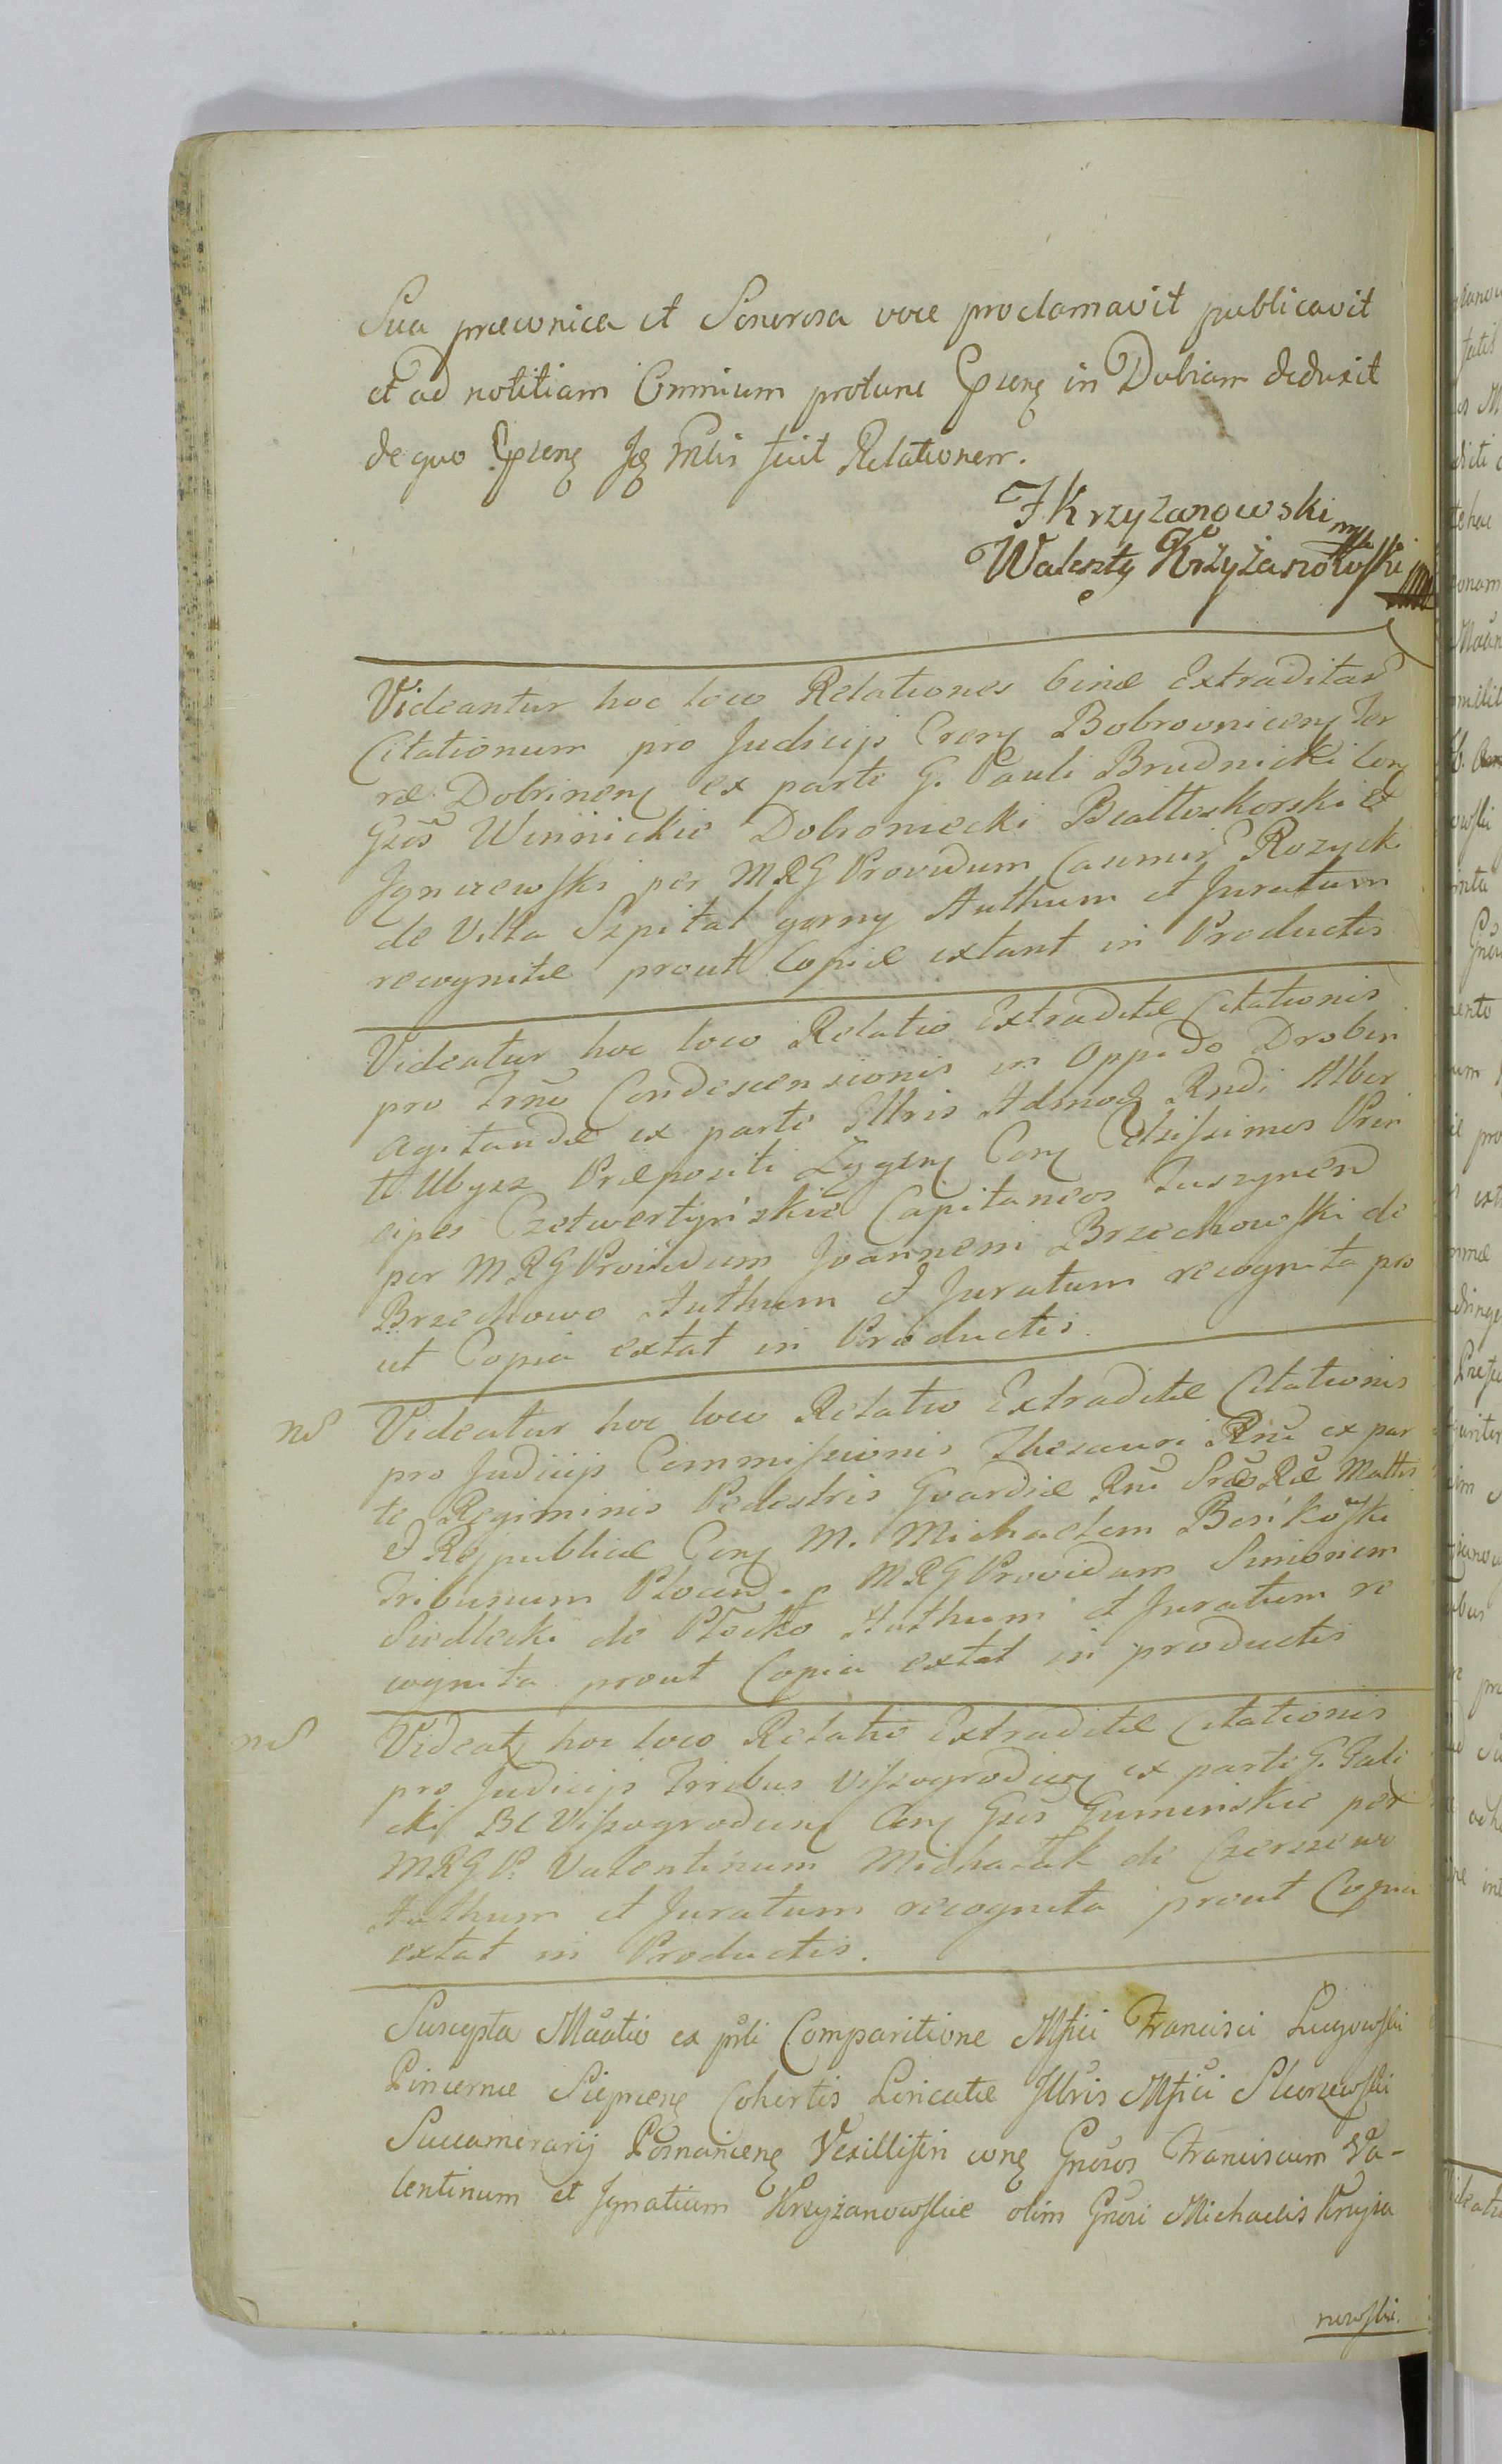 Sua præconica et Sonorosa voce proclamavit publicavit
et ad notitiam Omnium protunc in Dubiam deduxit
de quo fecit Relationem.
J Krzyżanowski mp
Walenty Krzyżanowski
Videantur hoc loco Relationes binæ Extraditar
Citationum pro Judicijs Bobrovnicen Ter
ræ Dobrinen ex parte G. Pauli Brudnicki Con
Gsos Winnickie Dobroniecki Białłoskorski et
per MRG Providum Casimir Rozyck
de Villa Szpital gorny Authum et Juratum
recognitæ prout Copiæ extant in Productis
Videatur hoc loco Relatio Extraditæ Citationis
pro Trno Condescensionis in Oppido Drobin
agitandæ ex parte Illris Admod Rndi Alber
ti Ubysz Præpositi Con Celsissimos Prin
cipes Czetwertyńskie Capitaneos
per MRG Providum Joannem Brzechowski de
Brzechowo Authum et Juratum recognita pro
ut Copia extat in Productis.
nd Videatur hoc loco Relatio Extraditæ Citationis
pro Judicijs Commissionis Thesauri Rni ex par
te Regiminis Pedestris Guardiæ Rni
et Reipublicæ Con M. Michaelem
Tribunum Plocen p MRG Providum Simonem
Siedlecki de Płocko Authum et Juratum re
cognita prout Copia extat in productis
nd Videat hoc loco Relatio Extraditæ Citationis
pro Judicijs Trribus Vissogrodien ex parte G.
Vissogrodien Con Gsos Guminskie per
MRG P. Valentinum Michalak de
Authum et Juratum recognita prout Copia
extat in Productis.
Suscepta ex Comparitione Mfici Francisci Ługowski
Pincernæ Cohortis Loricatæ Illris Mfici
Succamerarij Posnanien Gnosos Franciscum Va-
lentinum et Ignatium Krzyżanowskie olim Gnosi Michaelis Krzyża
nowskie.